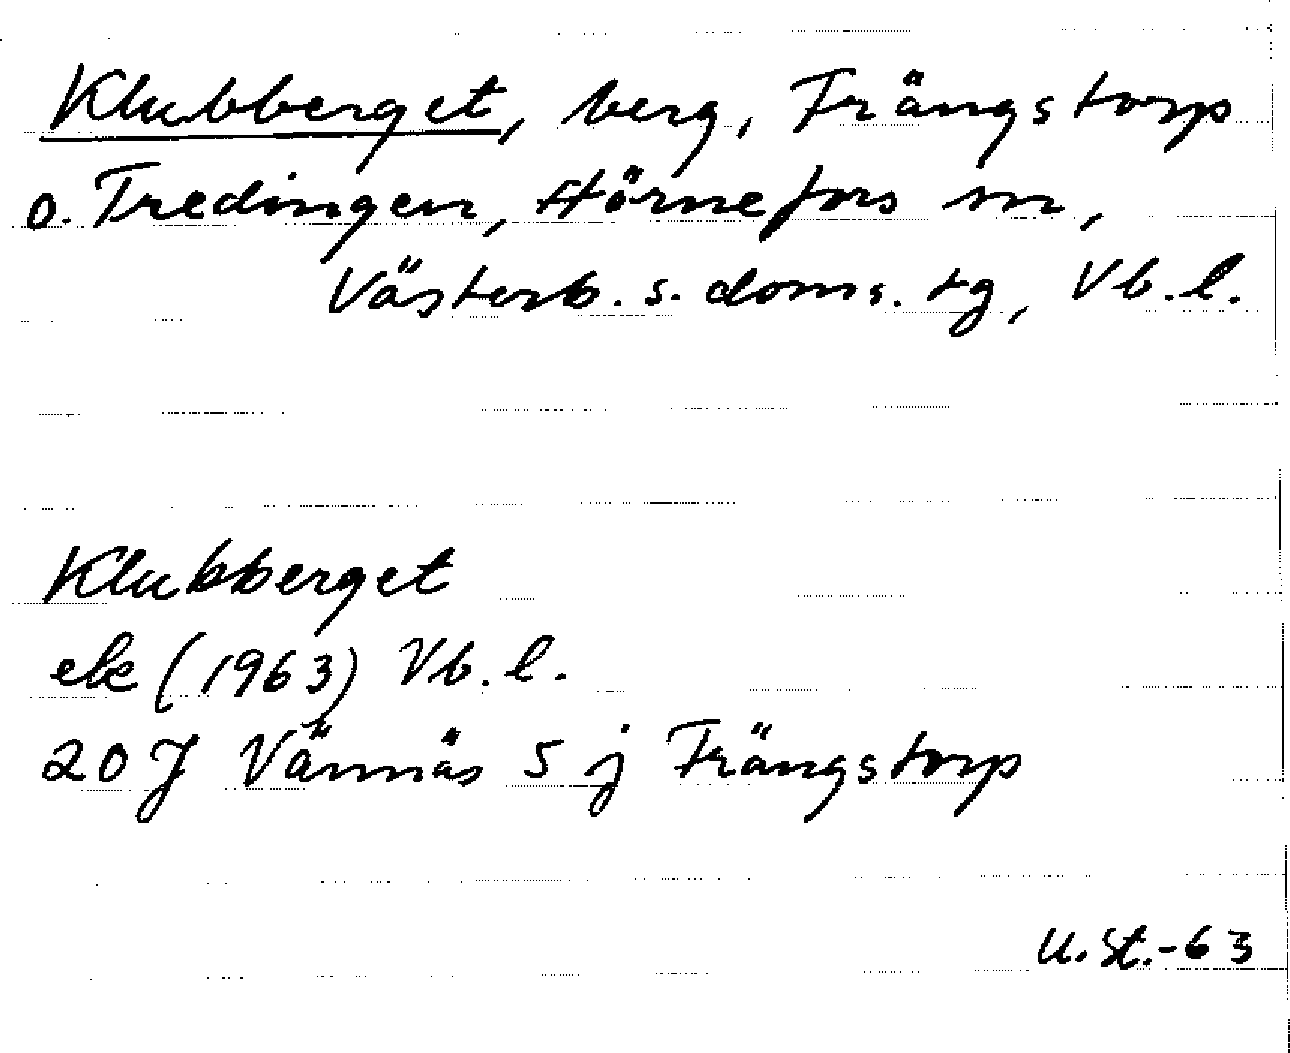 Klubberget, berg, Trängstorp
o. Tredingen, Hörnefors sn,
Västerb. s. doms. tg, Vb. l.
Klubberget
ek (1963) Vb. l.
20 J Vännäs 5 j Trängstorp
U. St.-63